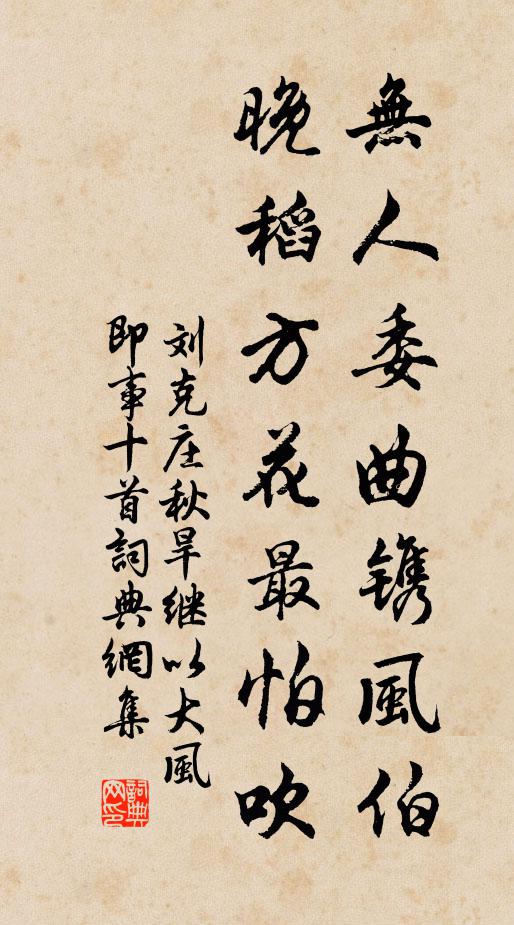 無人委曲镌風伯
晚稻方花最怕吹
刘克庄秋旱继以大風
即事十首詞典網集
詞典网印